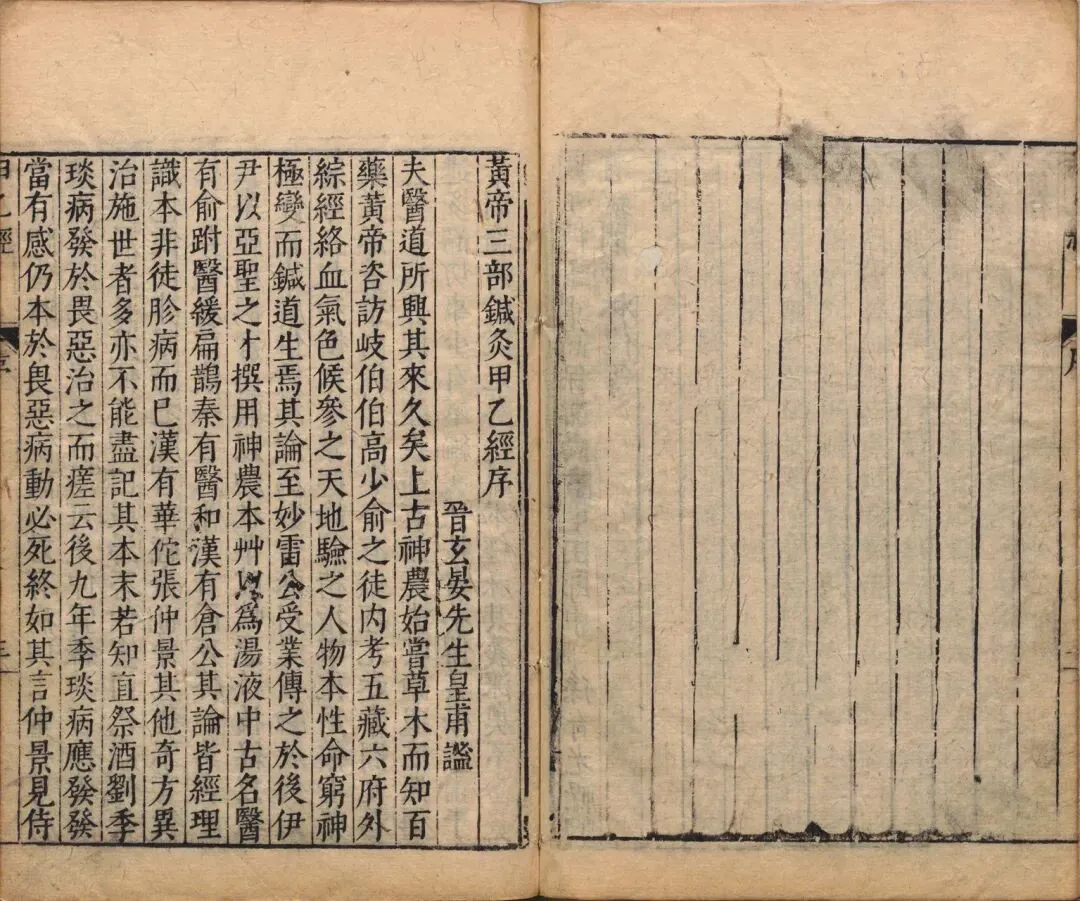 黃帝三部鍼灸甲乙經序
晉玄晏先生皇甫謐
夫醫道所興其來久矣上古神農始嘗草木而知百
藥黃帝咨訪岐伯伯高少俞之徒内考五藏六府外
綜經絡血氣色候參之天地驗之人物本性命窮神
極變而鍼道生焉其論至妙雷公受業傳之於後伊
尹以亞聖之才撰用神農本艸以爲湯液中古名醫
有俞跗醫緩扁鵲秦有醫和漢有倉公其論皆經理
識本非徒胗病而已漢有華佗張仲景其他奇方異
治施世者多亦不能盡記其本末若知直祭酒劉季
琰病發於畏惡治之而瘥云後九年季琰病應發發
當有感仍本於畏惡病動必死終如其言仲景見侍
甲乙經
序
三
序
二